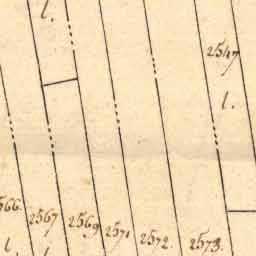 l.
2547
l.
2566.
2567
2569
2571
2572.
2573.
l.
l